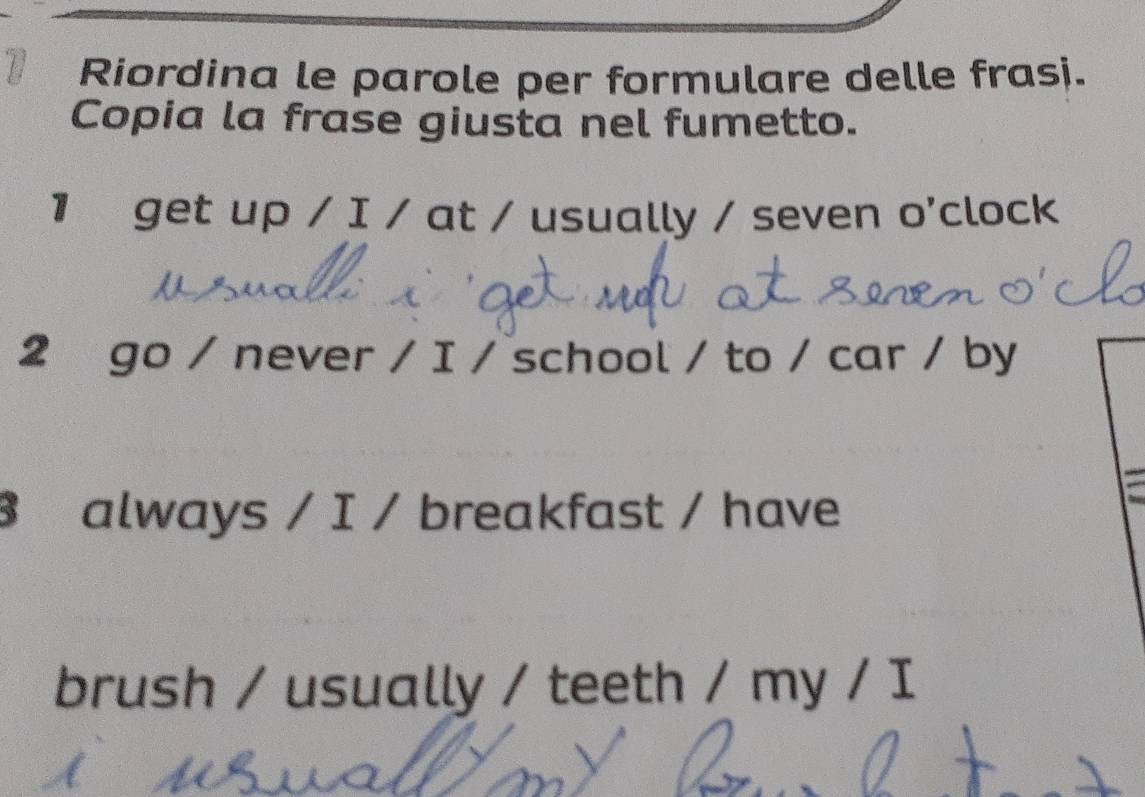 1 Riordina le parole per formulare delle frasi.
Copia la frase giusta nel fumetto.
1 get up / I / at / usually / seven o'clock
usualli i get up at seven o'clo
2 go / never / I / school / to / car / by
3 always / I / breakfast / have
brush / usually / teeth / my / I
i usually my